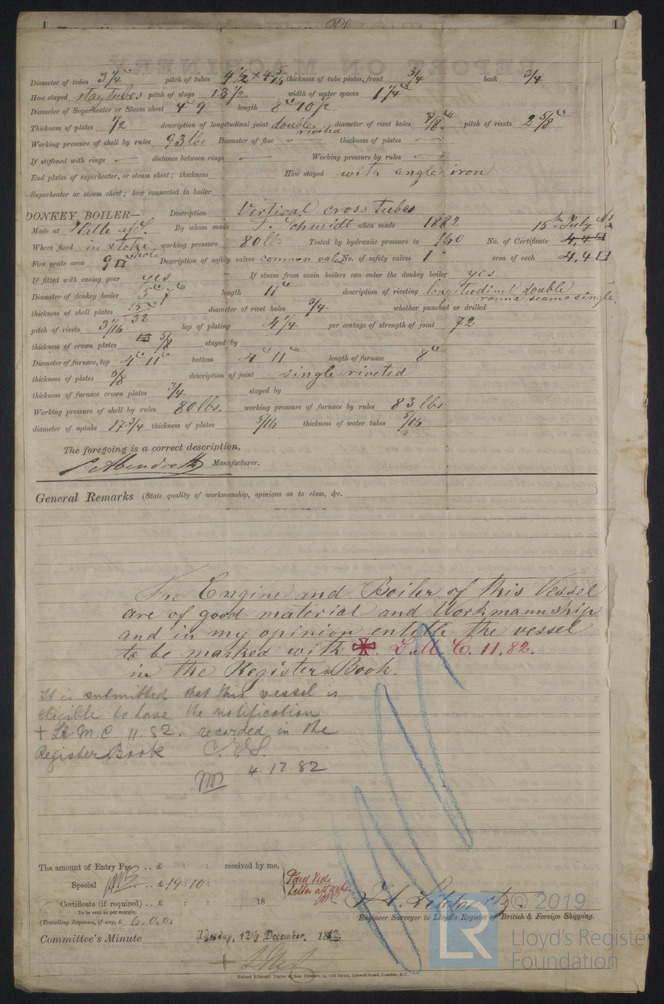 Diameter of tubes 3 1/4 pitch of tubes 4 1/2 × 4 thickness of tube plates, front 3/4 back 3/4
How stayed stay tubes pitch of stays 13 1/2 width of water spaces 1 1/4
Diameter of Superheater or Steam chest 4 9 length 8 10 1/2
Thickness of plates 1/2 description of longitudinal joint double riveted diameter of rivet holes 7/8 pitch of rivets 2 5/8
Working pressure of shell by rules 93 lbs Diameter of flue thickness of plates
If stiffened with rings distance between rings Working pressure by rules
End plates of superheater, or steam chest; thickness How stayed with angle iron
Superheater or steam chest; how connected to boiler
DONKEY BOILER— Description Vertical cross tubes
Made at Halle By whom made Schmidt when made 1882 15th July
Where fixed in stoke hole working pressure 80 lbs Tested by hydraulic pressure to 160 No. of Certificate
Fire grate area 9 Description of safety valves common valve No. of safety valves 1 area of each 4.4
If fitted with easing gear yes If steam from main boilers can enter the donkey boiler yes
Diameter of donkey boiler length 11 description of riveting longitudinal double round seams single
thickness of shell plates 15/32 diameter of rivet holes 3/4 whether punched or drilled
pitch of rivets 3 1/16 lap of plating 4 1/4 per centage of strength of joint 72
thickness of crown plates 5/8 stayed by
Diameter of furnace, top 4 11 bottom 4 11 length of furnace 8
thickness of plates 5/8 description of joint single riveted
thickness of furnace crown plates 3/4 stayed by
Working pressure of shell by rules 80 lbs. working pressure of furnace by rules 83 lbs
diameter of uptake 17 3/4 thickness of plates 5/16 thickness of water tubes 5/16
The foregoing is a correct description,
Manufacturer.
General Remarks (State quality of workmanship, opinions as to class, &c.
The Engine and Boiler of this Vessel
are of good material and Workmanship
and in my opinion entitle the vessel
to be marked with ✠. L.M.C. 11.82.
in the Register Book.
It is submitted that this vessel is
eligible to have the notification
+ L M C 11 82. recorded in the
Register Book
4 12 82
The amount of Entry Fee .. £ : : received by me,
Special .. £ 19 : 10 :
Paid Vide
Letter attached
Certificate (if required) .. £ : : 18
To be sent as per margin.
(Travelling Expenses, if any, £ 6.0.0)
Engineer Surveyor to Lloyd's Register of British & Foreign Shipping.
Committee's Minute Tuesday, 12th December, 1882
© 2019
LR
Lloyd's Register
Foundation